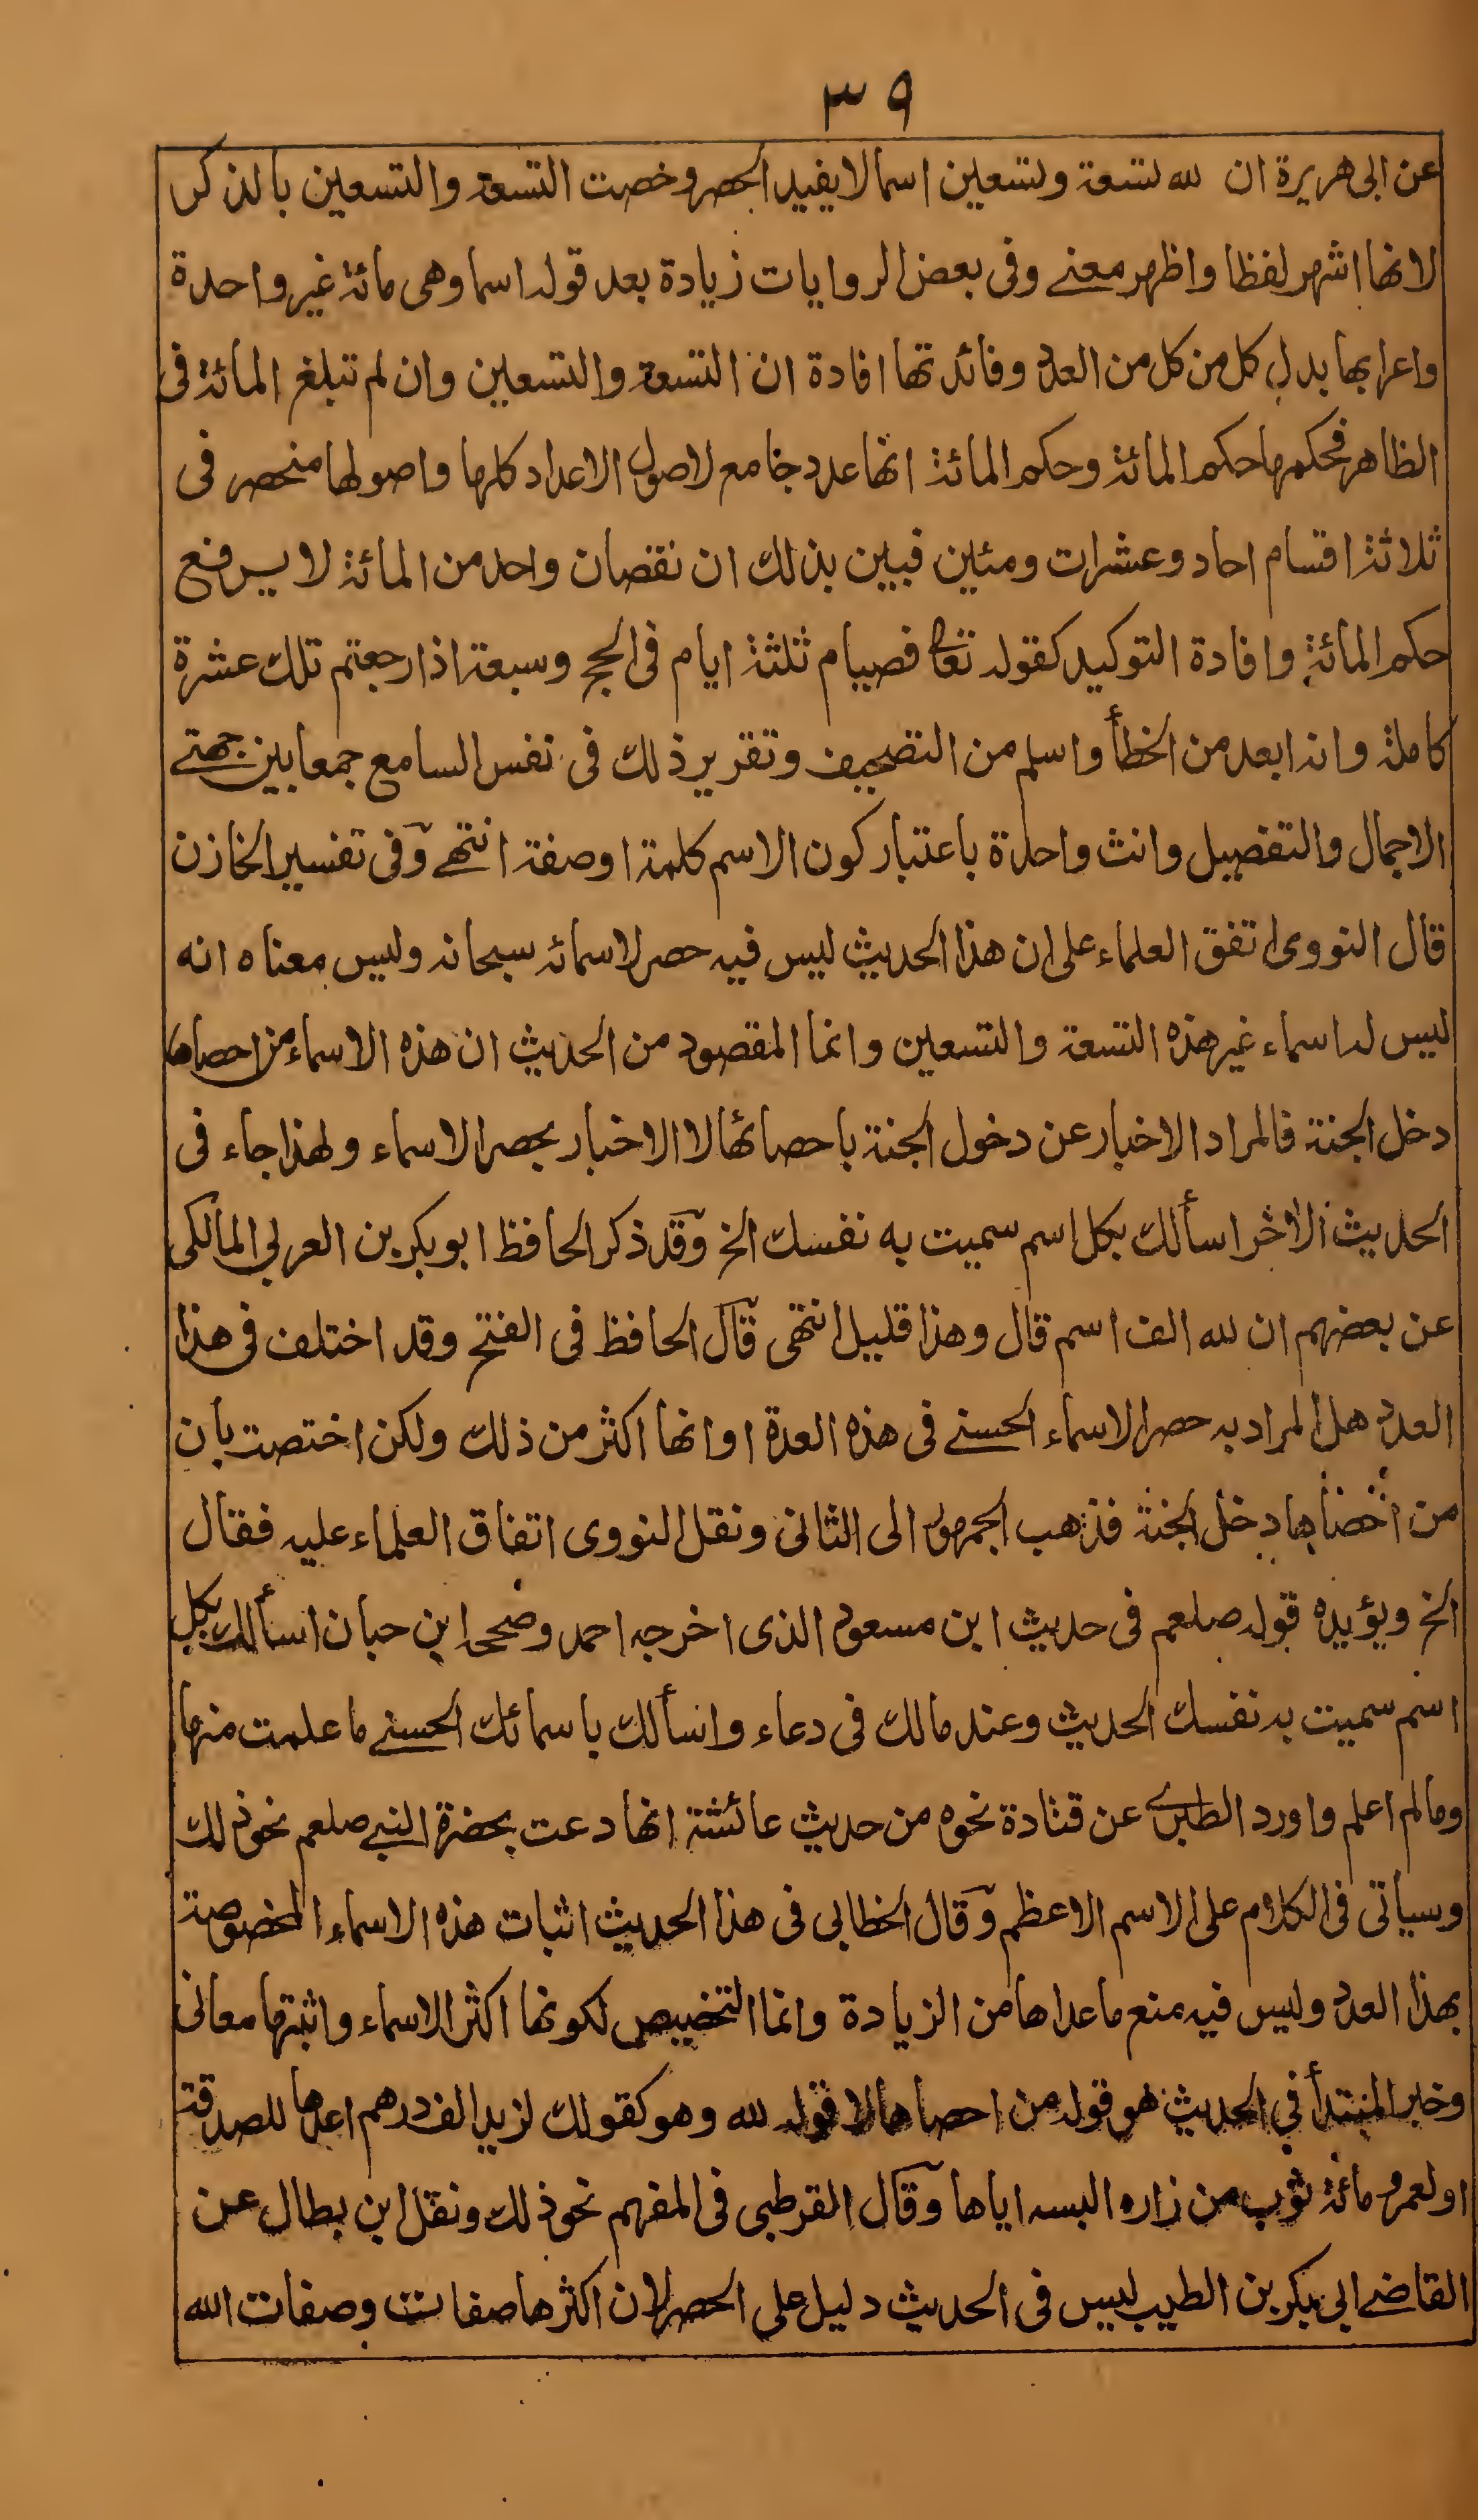 ٣٩
عن ابى هريرة ان لله تسعة وتسعين اسما لا يفيد الحصر وخصت التسعة والتسعين بالذكر
لانها اشهر لفظا واظهر معنے وفى بعض الروايات زيادة بعد قوله اسما وهى مائة غير واحدة
واعرابها بدل كل من كل من العدد وفائدتها افادة ان التسعة والتسعين وان لم تبلغ المائة فى
الظاهر فحكمها حكم المائة وحكم المائة انها عدد جامع لاصول الاعداد كلها واصولها منحصر فى
ثلاثة اقسام احاد وعشرات ومئين فبين بذلك ان نقصان واحد من المائة لا يرفع
حكم المائة وافادة التوكيد كقوله تعا فصيام ثلثة ايام فى الحج وسبعة اذا رجعتم تلك عشرة
كاملة وانه ابعد من الخطأ واسلم من التصحيف وتقرير ذلك فى نفس السامع جمعا بين جهتے
الاجمال والتفصيل وانث واحدة باعتبار كون الاسم كلمة او صفة انتهے وفى تفسير الخازن
قال النووى اتفق العلماء على ان هذا الحديث ليس فيه حصر لاسمائه سبحانه وليس معناه انه
ليس له اسماء غير هذه التسعة والتسعين وانما المقصود من الحديث ان هذه الاسماء من احصاها
دخل الجنة فالمراد الاخبار عن دخول الجنة باحصائها لا الاخبار بحصر الاسماء ولهذا جاء فى
الحديث الاخر اسألك بكل اسم سميت به نفسك الخ وقد ذكر الحافظ ابو بكر بن العربي المالكى
عن بعضهم ان لله الف اسم قال وهذا قليل انتهى قال الحافظ فى الفتح وقد اختلف فى هذا
العدد هل المراد به حصر الاسماء الحسنے فى هذه العدة او انها اكثر من ذلك ولكن اختصت بان
من احصاها دخل الجنة فذهب الجمهور الى الثانى ونقل النووى اتفاق العلماء عليه فقال
الخ ويؤيده قوله صلعم فى حديث ابن مسعود الذى اخرجه احمد وصححه ابن حبان اسألك بكل
اسم سميت به نفسك الحديث وعند مالك فى دعاء واسألك باسمائك الحسنے ما علمت منها
وما لم اعلم واورد الطبرے عن قتادة نحوه من حديث عائشة انها دعت بحضرة النبے صلعم نحو ذلك
وسياتى فى الكلام على الاسم الاعظم وقال الخطابى فى هذا الحديث اثبات هذه الاسماء المخصوصة
بهذا العدد وليس فيه منع ما عداها من الزيادة وانما التخصيص لكونها اكثر الاسماء واثبتها معانى
وخبر المبتدأ في الحديث هو قوله من احصاها لا قوله لله وهو كقولك لزيد الف درهم اعدها للصدقة
او لعمرو مائة ثوب من زاره البسه اياها وقال القرطبى فى المفهم نحو ذلك ونقل ابن بطال عن
القاضے ابي بكر بن الطيب ليس فى الحديث دليل على الحصر لان اكثرها صفات وصفات الله